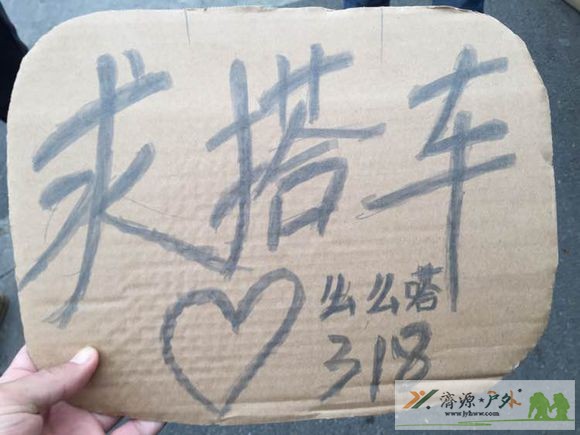 求搭车
么么嗒
318
濟源★户外
www.jyhww.com